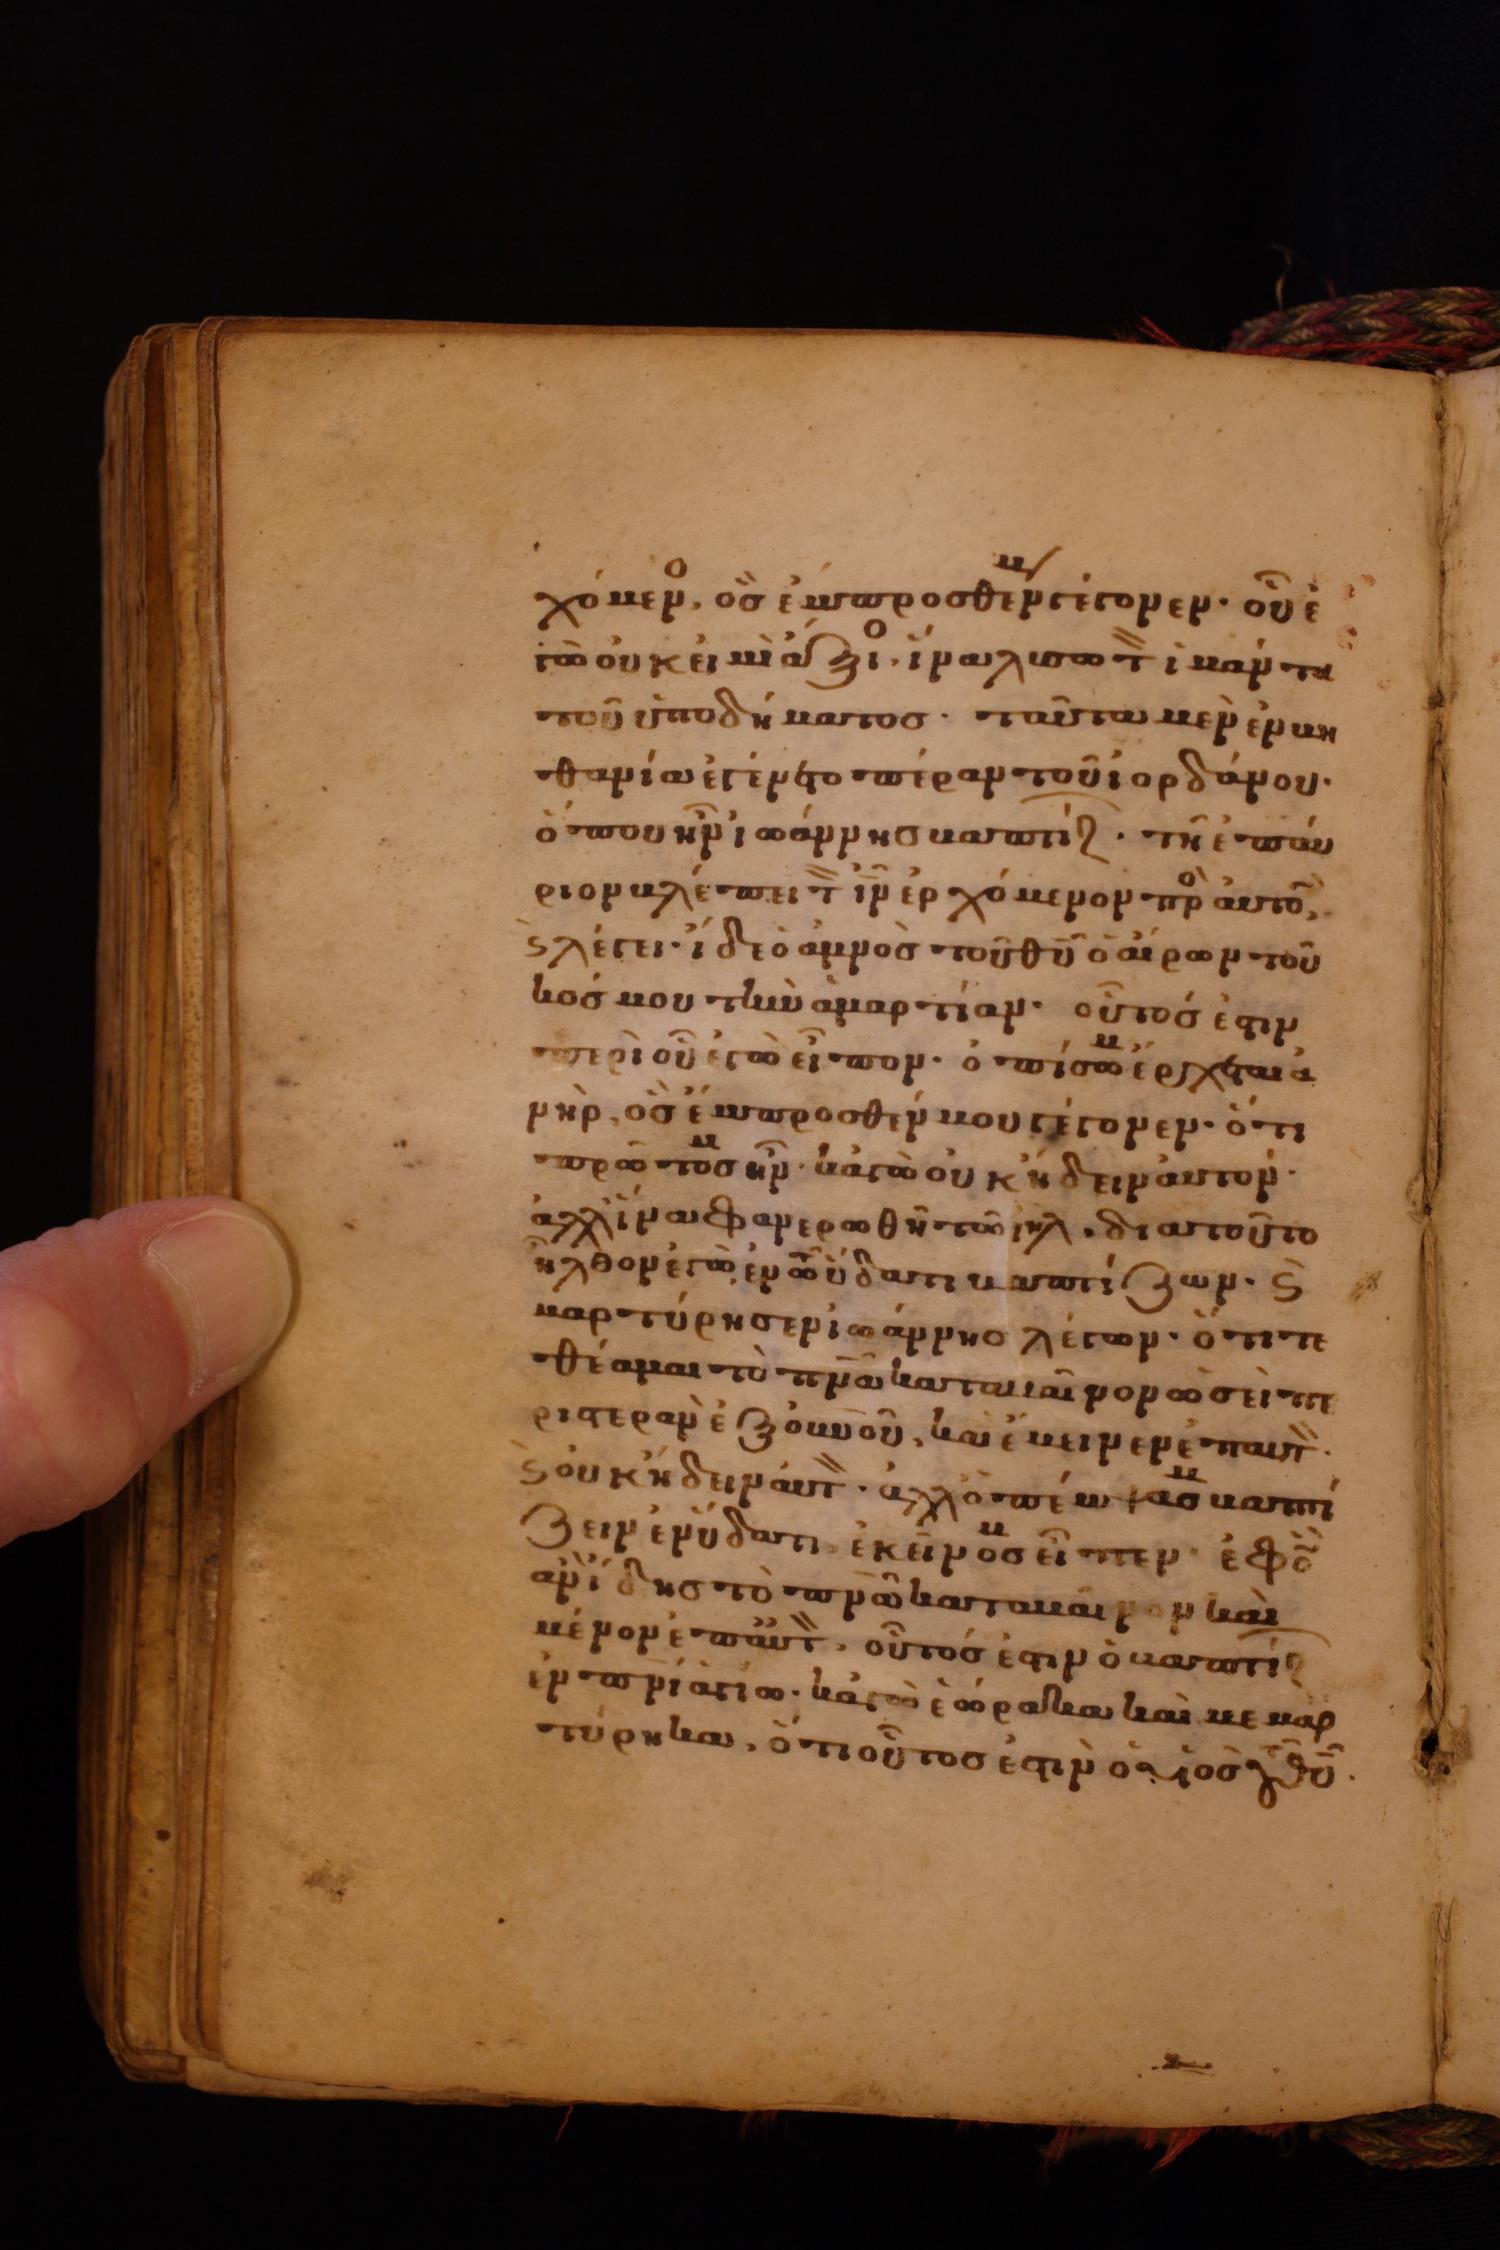 χόμεν(ο), ὃς ἔμπροσθέν μ(ου) γέγονεν· οὗ ἐ
γὼ οὐκ εἰμὶ ἄξιο, ἵνα λύσω τ ἱμάντα
τοῦ ὑποδήματος· ταῦτα μὲν ἐν βη
θανία ἐγένετο πέραν τοῦ ἰορδάνου·
ὅπου ἦν ἰωάννης βαπτίζ· τῆ ἐπαύ
ριον βλέπει τ ιν ἐρχόμενον πρὸ αὐτὸ,
ϛ λέγει· ἴδε ὁ ἀμνὸς τοῦ θυ ὁ αἴρων τοῦ
κόσμου τὴν ἁμαρτίαν· οὗτός ἐστιν
περὶ οὗ ἐγὼ εἶπον· ὀπίσω μ ἔρχεται ἀ
νὴρ, ὃς ἔμπροσθέν μου γέγονεν· ὅτι
πρῶτός μ ἦν· κἀγὼ οὐκ ἤδειν αὐτόν·
ἀλλ ἵνα φανερωθῆ τῶ ιηλ, διατοῦτο
ἦλθον ἐγὼ ἐν τῶ ὕδατι βαπτίζων· ϛ
μαρτύρησεν ἰωάννης λέγων· ὅτι τε
θέαμαι τὸ πνα καταβαῖνον ὡσεὶ πε
ριστερὰν ἐξ οὐνου, καὶ ἔμεινεν ἐπ αυτ·
ϛ οὐκ ἤδειν αὐτ· ἀλλ ὁ πέμψας μ βαπτί
ζειν ἐν ὕδατι, ἐκεῖνός μ εἶπεν· ἐφ ὃ
ἂν ἴδης τὸ πνα καταβαῖνον καὶ
μένον ἐπ αὐτ, οὗτός ἐστιν ὁ βαπτίζ
ἐν πνι ἁγίω· κἀγὼ ἑώρακα καὶ μεμαρ
τύρηκα, ὅτι οὗτος ἐστὶν ὁ υἱὸς τοῦ θυ·